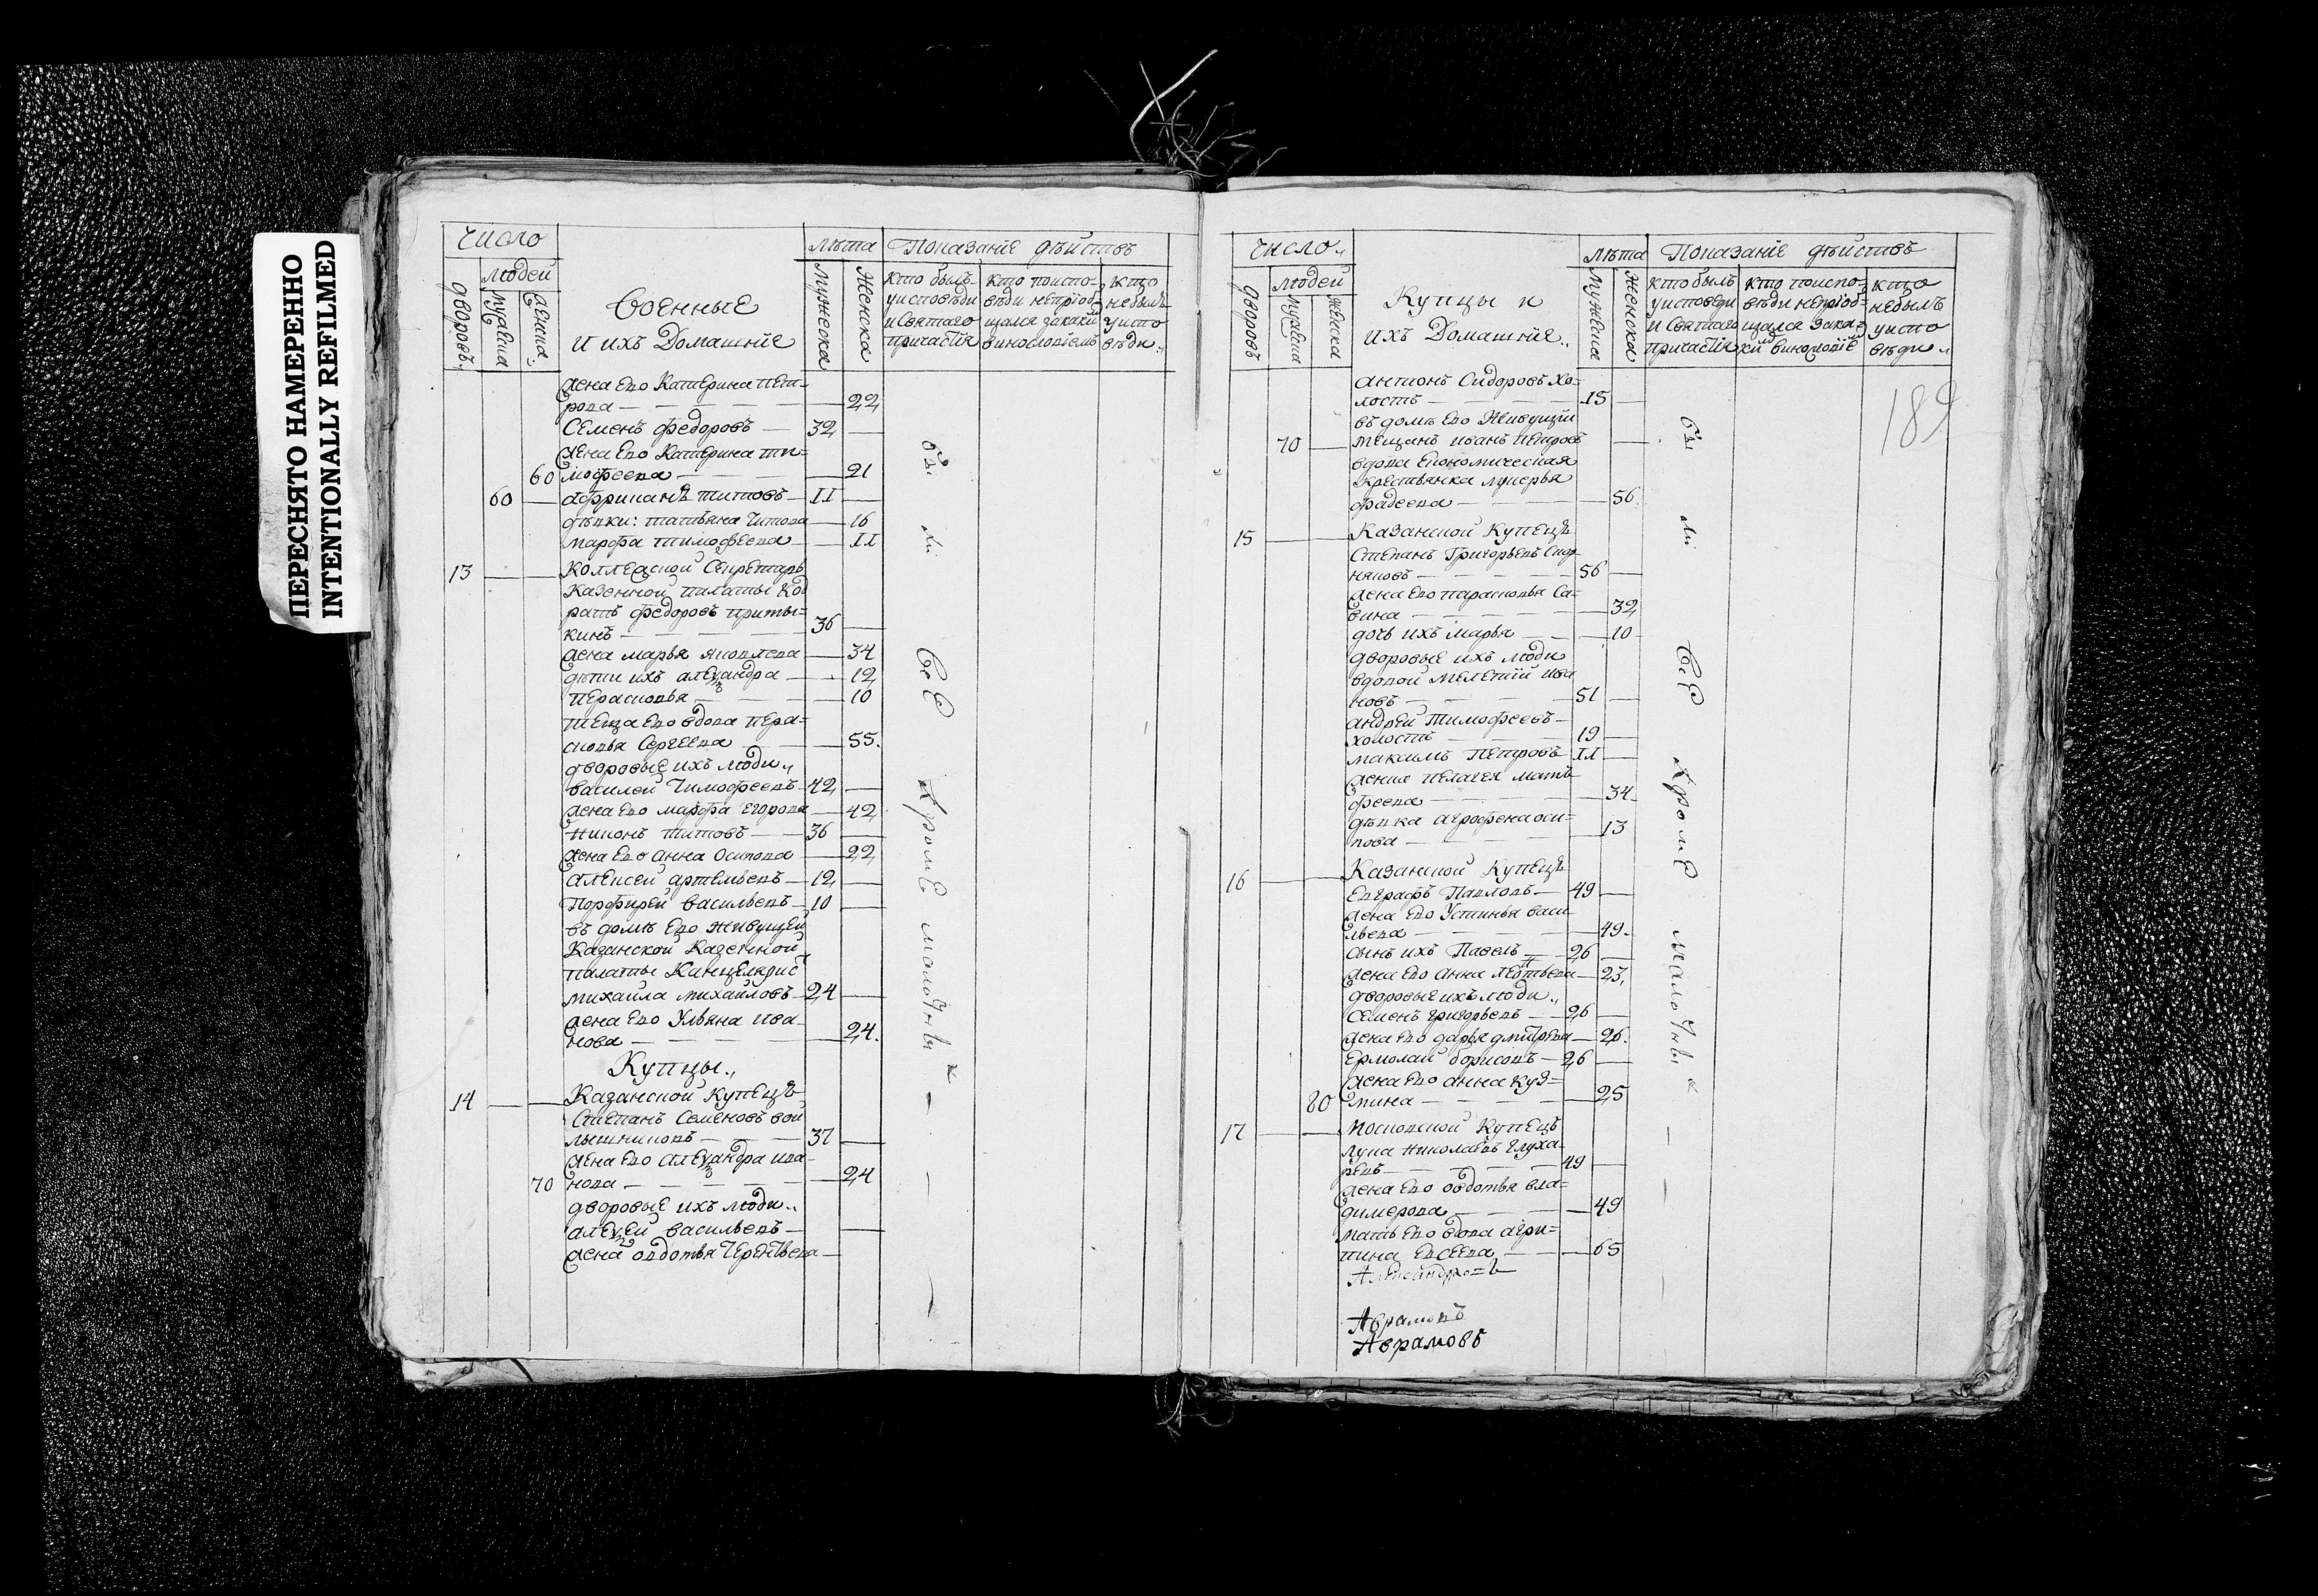 ПЕРЕСНЯТО НАМЕРЕННО
INTENTIONALLY REFILMED
Число
людей
дворовъ
мужеска
женска
Военные
и ихъ Домашніе
лѣта
Мужеска
Женска
Показаніе дѣйствъ
кто былъ
у исповѣди
и Святаго
причастія
кто поиспо-
вѣди непріоб-
щался закаки
виномопіемъ
кто
небылъ
у испо
вѣди
жена Ево Катерина Пет-
рова 22
Семенъ Федоровъ 32
жена Ево Катерина ти-
60 мофеева 21
60 Африканъ титовъ II
дѣвки: татьяна Титова 16
марфа тимофеева II
13 Коллежской Секретарь
Казенной палаты Код
ратъ Федоровъ Приты=
кинъ 36
жена марья яковлева 34
дѣти ихъ алеѯандра 12
Перасковья 10
теща Ево вдова пера=
сковья Сергеева 55
дворовые ихъ люди
василей Тимофеевъ 42
жена Ево марфа Егорова 42
Никонъ титовъ 36
жена Ево анна Осипова 22
алексей артемьевъ 12
Порфирей васильевъ 10
въ домѣ Ево живущей
Казанской Казенной
палаты Канцеляріс
михайла михайловъ 24
жена Ево Ульяна ива
нова 24
Купцы
14 Казанской Купецъ
Степанъ Семеновъ вои
лышниковъ 37
жена Ево алеѯандра ива-
70 нова 24
дворовые ихъ люди
алеѯей васильевъ
жена овдотья Терентьева
бы
ли
Все
кроме
малолѣтны х
Число
людей
дворовъ
мужеска
женска
Купцы и
ихъ Домашніе
лѣта
Мужеска
Женска
Показаніе дѣйствъ
кто былъ
у исповѣди
и Святаго
причастія
кто поиспо-
вѣди непріоб=
щался Зака-
кто
небылъ
у испо
вѣди
189
антонъ Сидоровъ Хо=
лостъ 15
въ домѣ Ево Живущій
70 мещанъ иванъ Петровъ
вдова Економическая
крестьянка лукерья
фадеева 56
15 Казанской Купецъ
Степанъ Григорьевъ
няковъ 56
жена Ево парасковья Са=
вина 32
дочь ихъ марья 10
дворовые ихъ люди
вдовой Мелетій ива
новъ 51
андрей Тимофеевъ
холостъ 19
максимъ Петровъ II
женка Пелагея матъ
феева 34
дѣвка агрофена оси=
пова 13
16 Казанской Купецъ
Евграфъ Павловъ 49
жена Ево Устинья васи
льева 49
сынъ ихъ Павелъ 26
жена Ево анна леѡтьева 23
дворовые ихъ люди
Семенъ григорьевъ 26
жена Ево дарья дмитрева 26
Ермолай борисовъ 26
жена Ево анна куз=
80 мина 25
17 Московской Купецъ
лука николаевъ глуха-
ревъ 49
жена Ево овдотья вла=
димерова 49
мать Ево вдова агри=
пина Евсеева 65
Аврамовъ
Аврамовъ
бы
ли
Все
кроме
малолѣтны х